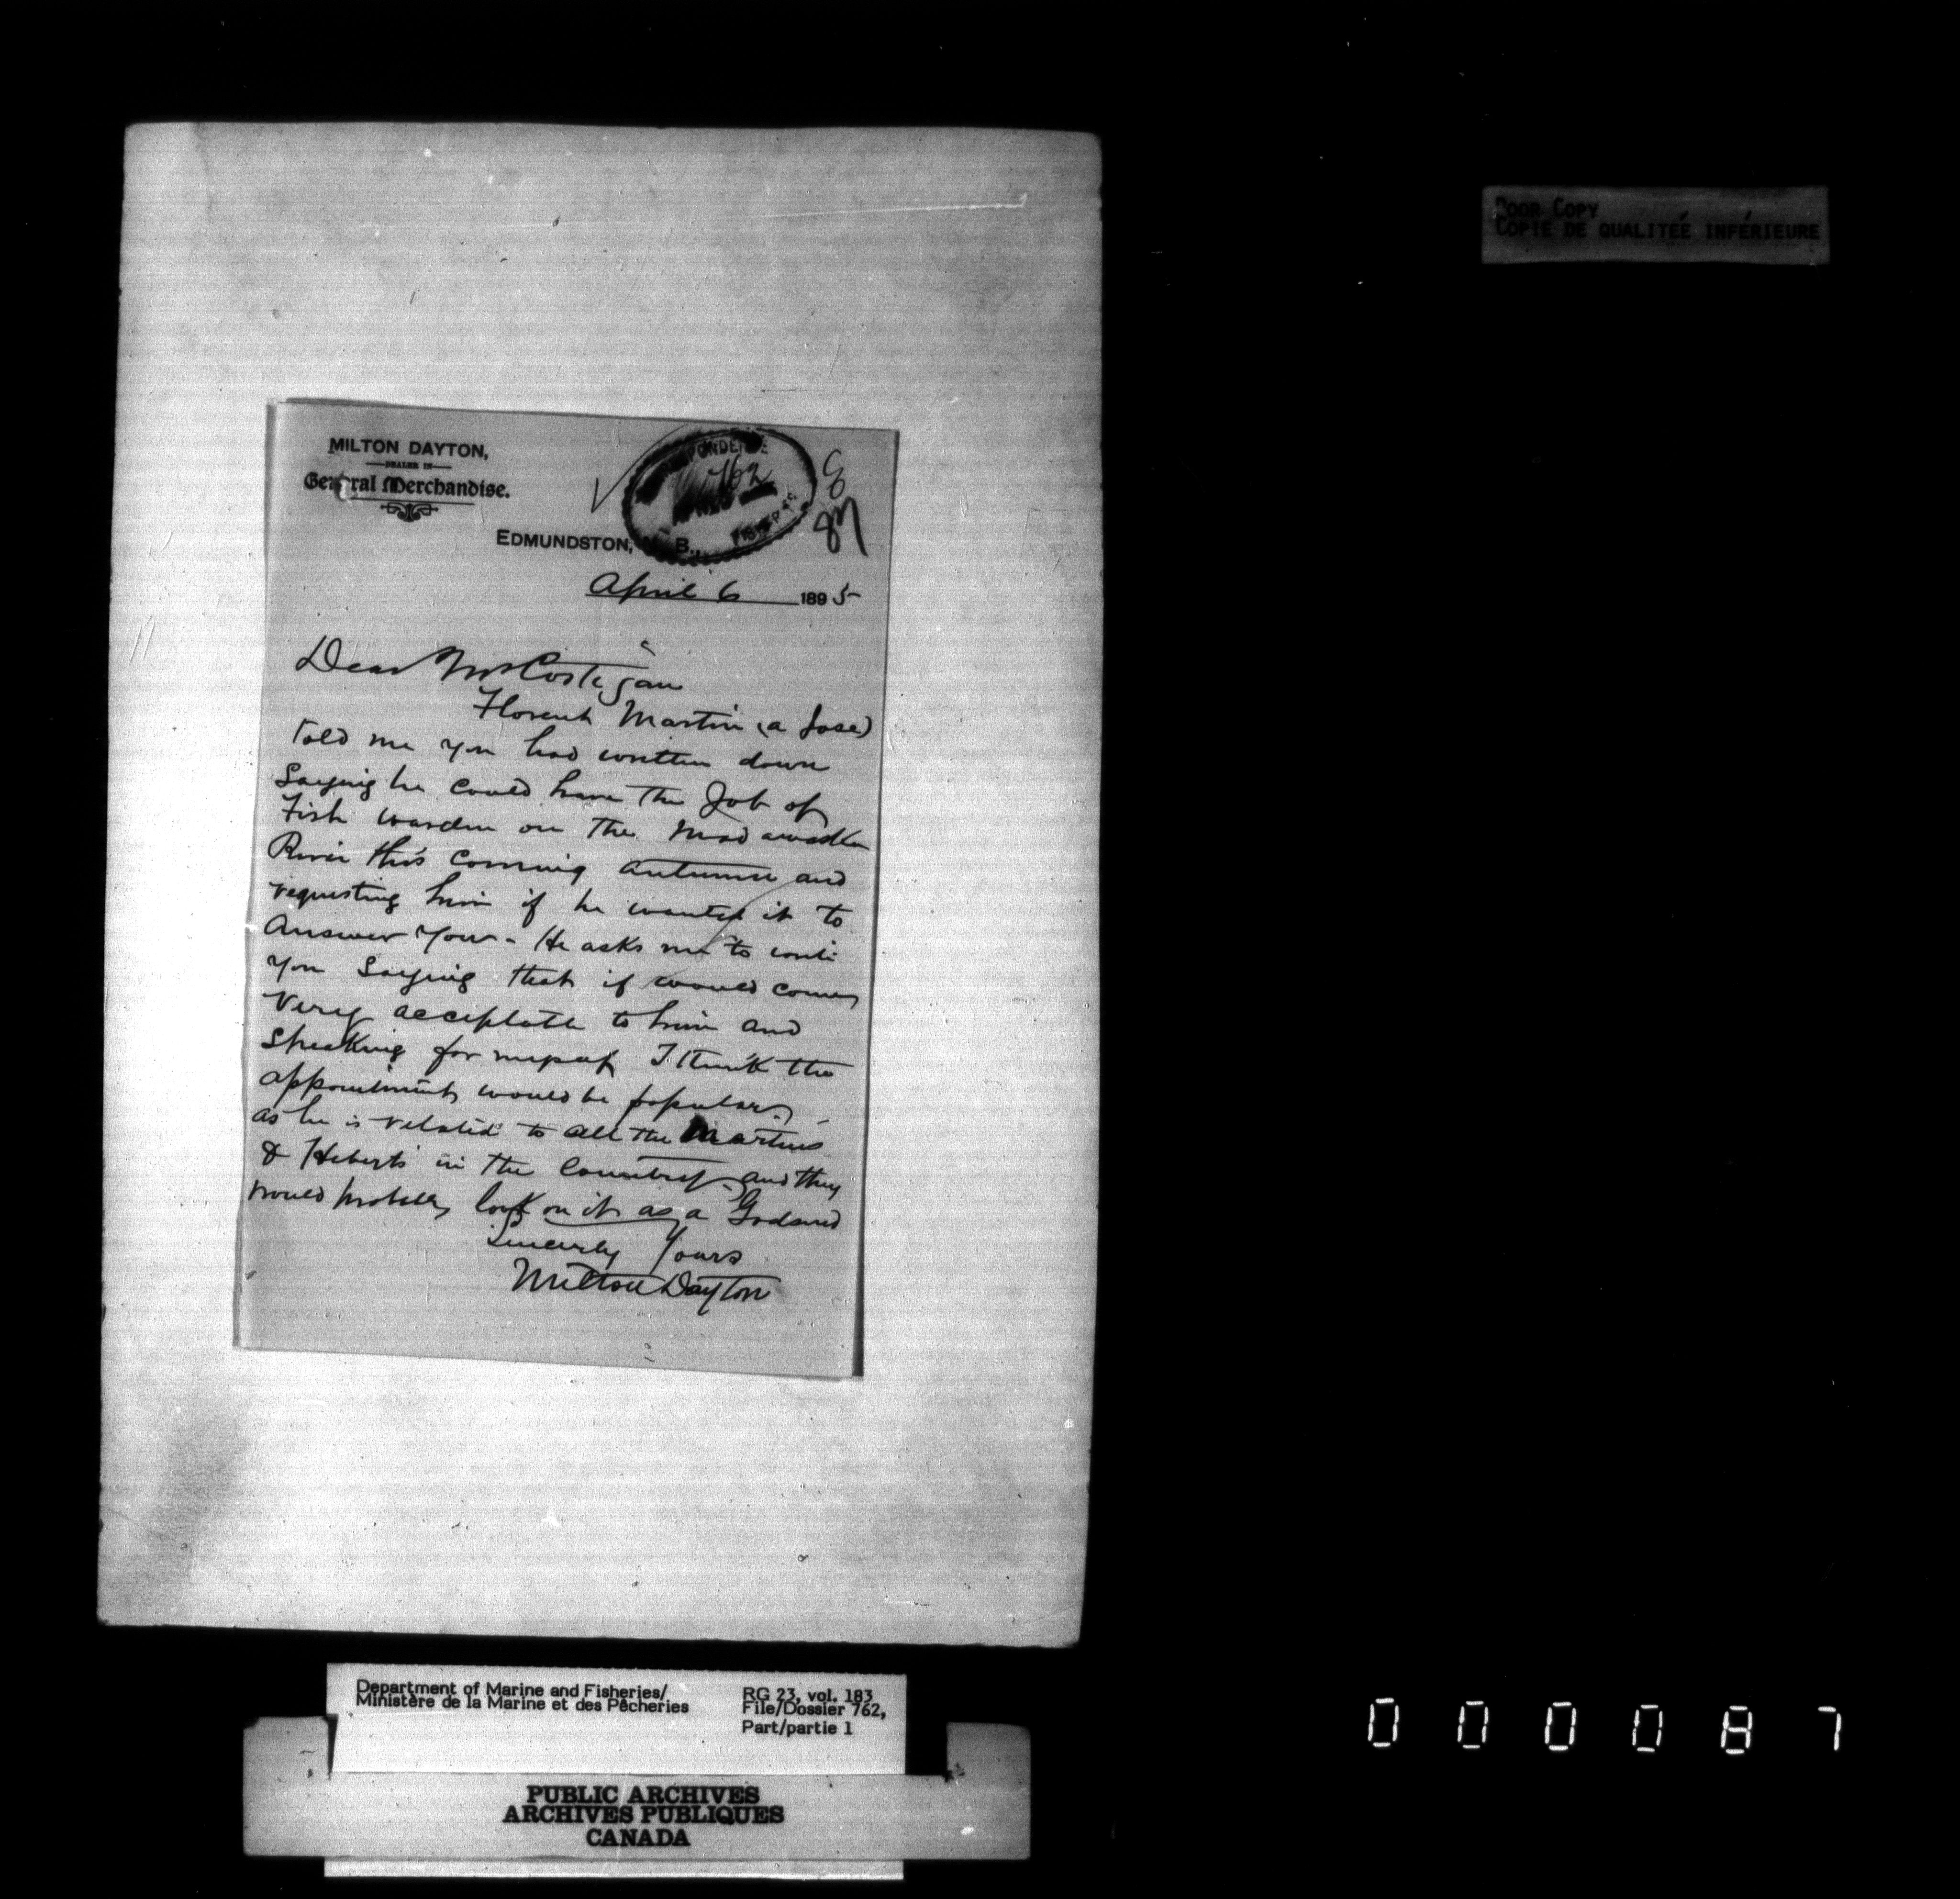 POOR COPY
COPIE DE QUALITÉÉ INFÉRIEURE
MILTON DAYTON,
DEALER IN
General Merchandise.
762
FISHERIES
EDMUNDSTON, N. B.,
87
April 6 1895
Dear Mr Costigan
Florent Martin (a Jose)
Told me you had written down
Saying he could have the Job of
Fish warden on the Madawaska
River this coming autumn and
requesting him if he wanted it to
Answer You - He asks me to write
you Saying that if would come
very acceptable to him and
Speaking for myself I think the
appointment would be popular
as he is related to all the Martins
& Heberts in the Country and they
would probably look on it as a Godsend
Sincerely Yours
Milton Dayton
Department of Marine and Fisheries/
Ministère de la Marine et des Pêcheries
RG 23, vol. 183
File/Dossier 762,
Part/partie 1
PUBLIC ARCHIVES
ARCHIVES PUBLIQUES
CANADA
000087